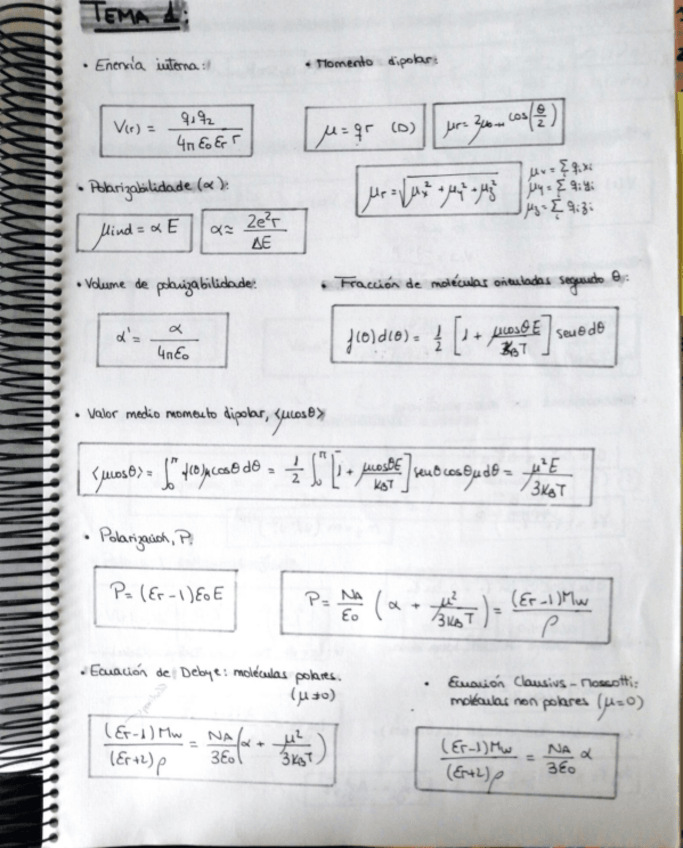 TEMA 1:
• Enerxía interna:
V(r) = q₁q₂ / 4π ε₀ εr r
• Momento dipolar:
μ = qr (D)
μr = 2μ₀ cos(θ/2)
μr = √(μx² + μy² + μz²)
μx = Σᵢ qᵢxᵢ
μy = Σᵢ qᵢyᵢ
μz = Σᵢ qᵢzᵢ
• Polarizabilidade (α):
μind = α E
α ≈ 2e²r / ΔE
• Volume de polarizabilidade:
α' = α / 4πε₀
• Fracción de moléculas orientadas segundo θ:
f(θ)d(θ) = 1/2 [1 + μcosθE / kBT] senθdθ
• Valor medio momento dipolar, ⟨μcosθ⟩
⟨μcosθ⟩ = ∫₀^π f(θ)μcosθdθ = 1/2 ∫₀^π [1 + μcosθE / kBT] senθcosθμdθ = μ²E / 3kBT
• Polarización, P:
P = (εr − 1)ε₀E
P = NA/ε₀ (α + μ²/3kBT) = (εr − 1)Mw / ρ
• Ecuación de Debye: moléculas polares.
(μ≠0)
(εr−1)Mw / (εr+2)ρ = NA/3ε₀ (α + μ²/3kBT)
• Ecuación Clausius-Mossotti:
moléculas non polares (μ=0)
(εr−1)Mw / (εr+2)ρ = NA/3ε₀ α